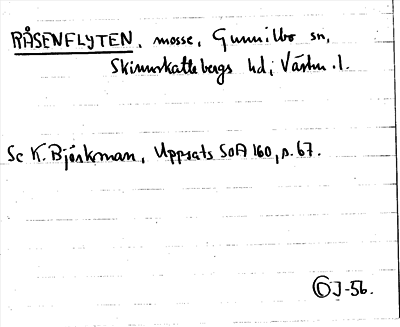 RÅSENFLYTEN, mosse, Gunnilbo sn,
Skinnskattebergs hd, Västm.l.
Se K. Björkman, Uppsats SOA 160, s. 67.
DJ-56.